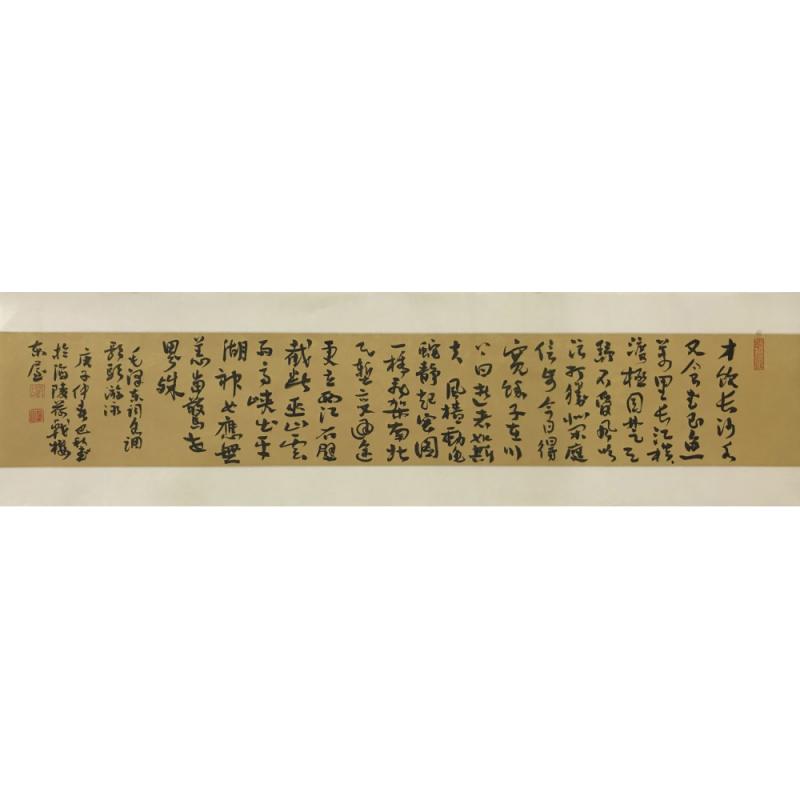 才饮长沙水
又食武昌鱼
萬里长江横
渡極目楚天
舒不管風吹
浪打勝似闲庭
信步今日得
宽餘子在川
上曰逝者如斯
夫風樯動龟
蛇静起宏圖
一橋飛架南北
天塹变通途
更立西江石壁
截断巫山雲
雨高峡出平
湖神女應無
恙當驚世
界殊
毛泽东词水调
歌頭游泳
庚子仲春
於海陵荷戟楼
东屋